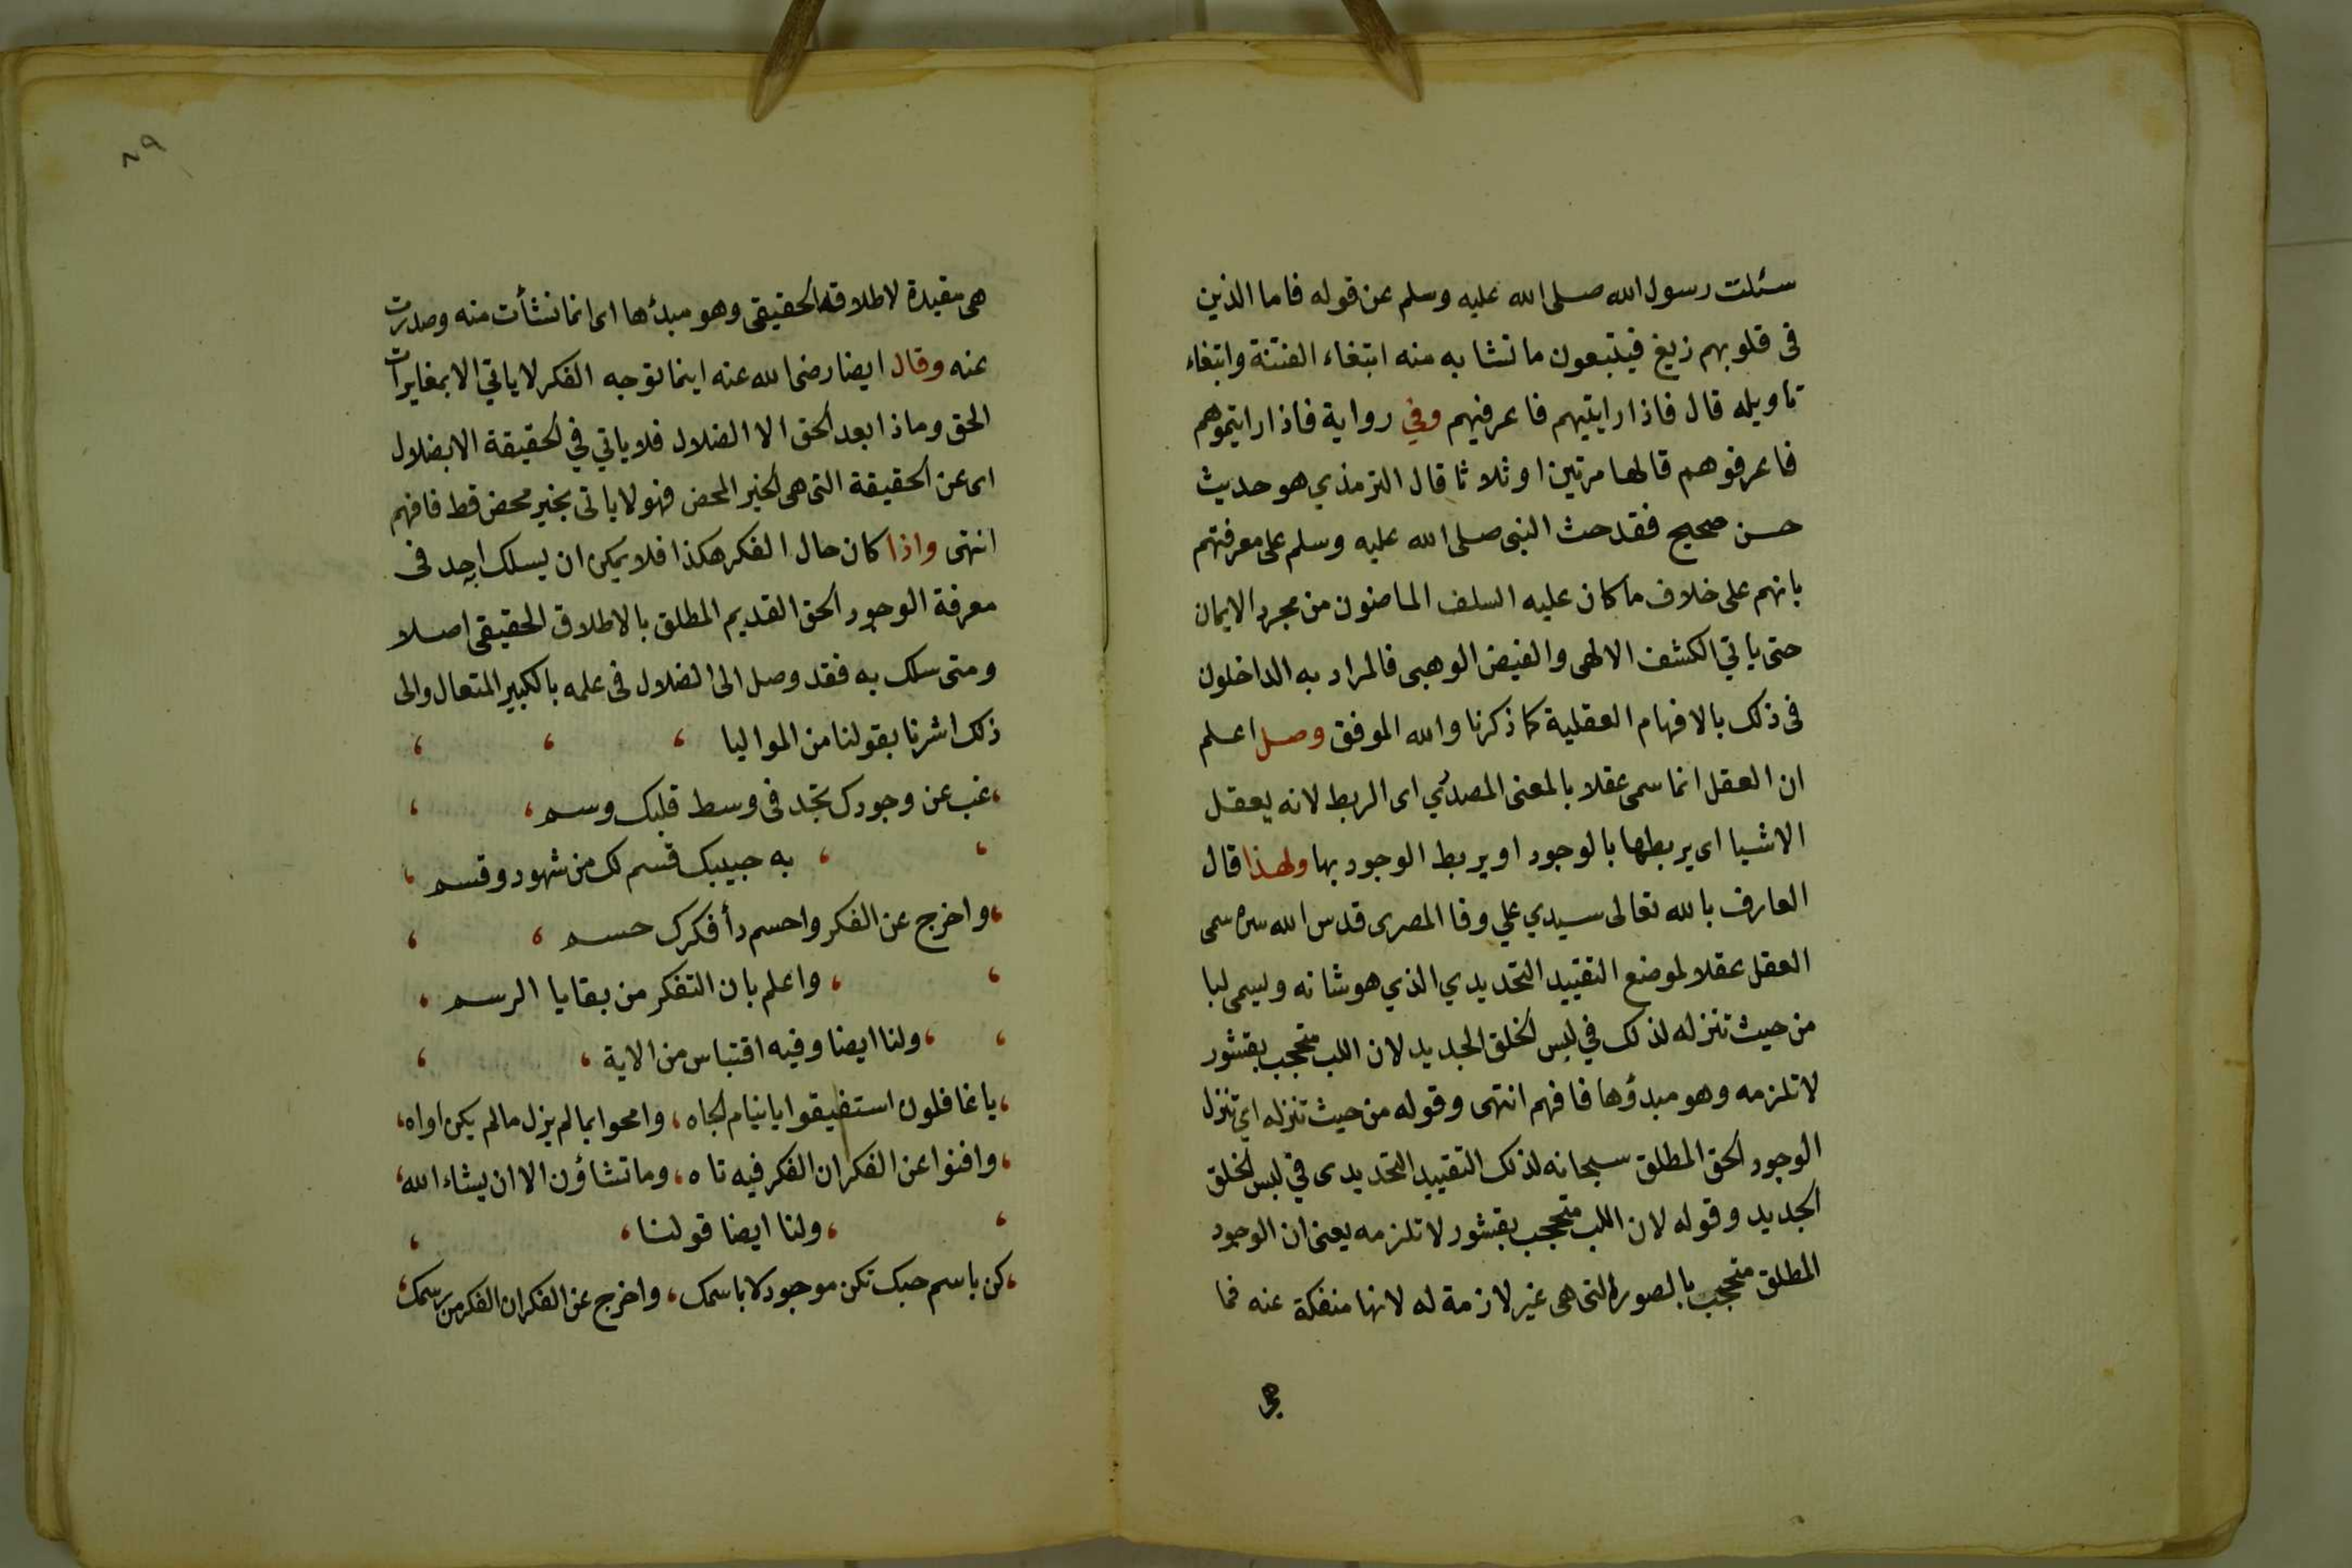 سئلت رسول الله صلى الله عليه وسلم عن قوله فاما الذين
فى قلوبهم زيغ فيتبعون ما تشابه منه ابتغاء الفتنة وابتغاء
تاويله قال فاذا رايتيهم فاعرفيهم وفي رواية فاذا رايتموهم
فاعرفوهم قالها مرتين او ثلاثا قال الترمذي هو حديث
حسن صحيح فقد حث النبى صلى الله عليه وسلم على معرفتهم
بانهم على خلاف ما كان عليه السلف الماضون من مجرد الايمان
حتى ياتي الكشف الالهى والفيض الوهبى فالمراد به الداخلون
فى ذلك بالافهام العقلية كما ذكرنا والله الموفق وصل اعلم
ان العقل انما سمى عقلا بالمعنى المصدري اى الربط لانه يعقل
الاشيا اى يربطها بالوجود او يربط الوجود بها ولهذا قال
العارف بالله تعالى سيدي علي وفا المصرى قدس الله سره سمى
العقل عقلا لموضع التقييد التحديدي الذي هو شانه ويسمى لبا
من حيث تنزله لذلك في لبس الخلق الجديد لان اللب متحجب بقشور
لا تلزمه وهو مبدؤها فافهم انتهى وقوله من حيث تنزله اى تنزل
الوجود الحق المطلق سبحانه لذلك التقييد التحديدى في لبس الخلق
الجديد وقوله لان اللب متحجب بقشور لا تلزمه يعنى ان الوجود
المطلق متحجب بالصورة التى هى غير لازمة له لانها منفكة عنه فما
هى
٨٩
هى مقيدة لاطلاقه الحقيقى وهو مبدؤها اى انما نشأت منه وصدرت
عنه وقال ايضا رضى الله عنه اينما توجه الفكر لا ياتي الا بمغايرات
الحق وماذا بعد الحق الا الضلال فلا ياتي في الحقيقة الا بضلال
اى عن الحقيقة التى هى الخير المحض فهو لا ياتى بخير محض قط فافهم
انتهى واذا كان حال الفكر هكذا فلا يمكن ان يسلك به احد فى
معرفة الوجود الحق القديم المطلق بالاطلاق الحقيقى اصلا
ومتى سلك به فقد وصل الى الضلال فى علمه بالكبير المتعال والى
ذلك اشرنا بقولنا من المواليا
غب عن وجودك تجد فى وسط قلبك وسم
به حبيبك قسم لك من شهود وقسم
واخرج عن الفكر واحسم دأ فكرك حسم
واعلم بان التفكر من بقايا الرسم
ولنا ايضا وفيه اقتباس من الاية
يا غافلون استفيقوا يا نيام الجاه ، وامحوا بما لم يزل ما لم يكن اواه
وافنوا عن الفكر ان الفكر فيه تاه ، وما تشاؤن الا ان يشاء الله
ولنا ايضا قولنا
كن باسم حبك تكن موجود لا باسمك ، واخرج عن الفكر ان الفكر من رسمك